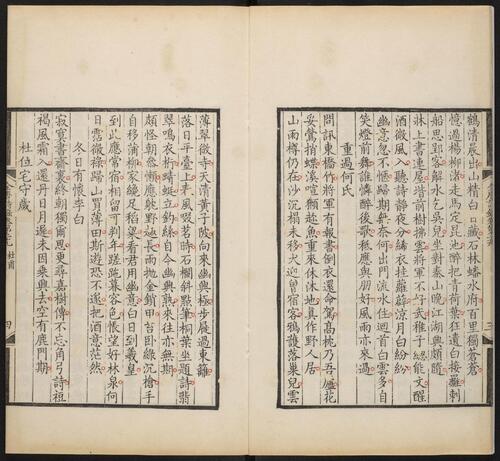 鶴清晨出山精白日藏石林蟠水府百里獨蒼蒼
憶過楊柳渚走馬定昆池醉把青荷葉狂遺白接䍦刺
船思郢客解水乞吳兒坐對秦山晚江湖興頗隨
牀上書連屋階前樹拂雲將軍不好武稚子總能文醒
酒微風入聽詩靜夜分絺衣挂蘿薜涼月白紛紛
幽意忽不愜歸期無奈何出門流水住迴首白雲多自
笑燈前舞誰憐醉後歌秪應與朋好風雨亦來過
重過何氏
問訊東橋竹將軍有報書倒衣還命駕高枕乃吾廬花
妥鶯捎蝶溪喧獺趁魚重來休沐地真作野人居
山雨樽仍在沙沉榻未移犬迎曾宿客鴉護落巢兒雲
薄翠微寺天清黃子陂向來幽興極步屣過東籬
落日平臺上春風啜茗時石欄斜點筆桐葉坐題詩翡
翠鳴衣桁蜻蜓立釣絲自今幽興熟來往亦無期
頗怪朝參懶應耽野趣長雨拋金鎖甲苔臥綠沉槍手
自移蒲柳家纔足稻粱看君用幽意白日到羲皇
到此應常宿相留可判年蹉跎暮容色悵望好林泉何
日霑微祿歸山買薄田斯遊恐不遂把酒意茫然
冬日有懷李白
寂寞書齋裏終朝獨爾思更尋嘉樹傳不忘角弓詩裋
褐風霜入還丹日月遲未因乘興去空有鹿門期
杜位宅守歲
杜甫
四